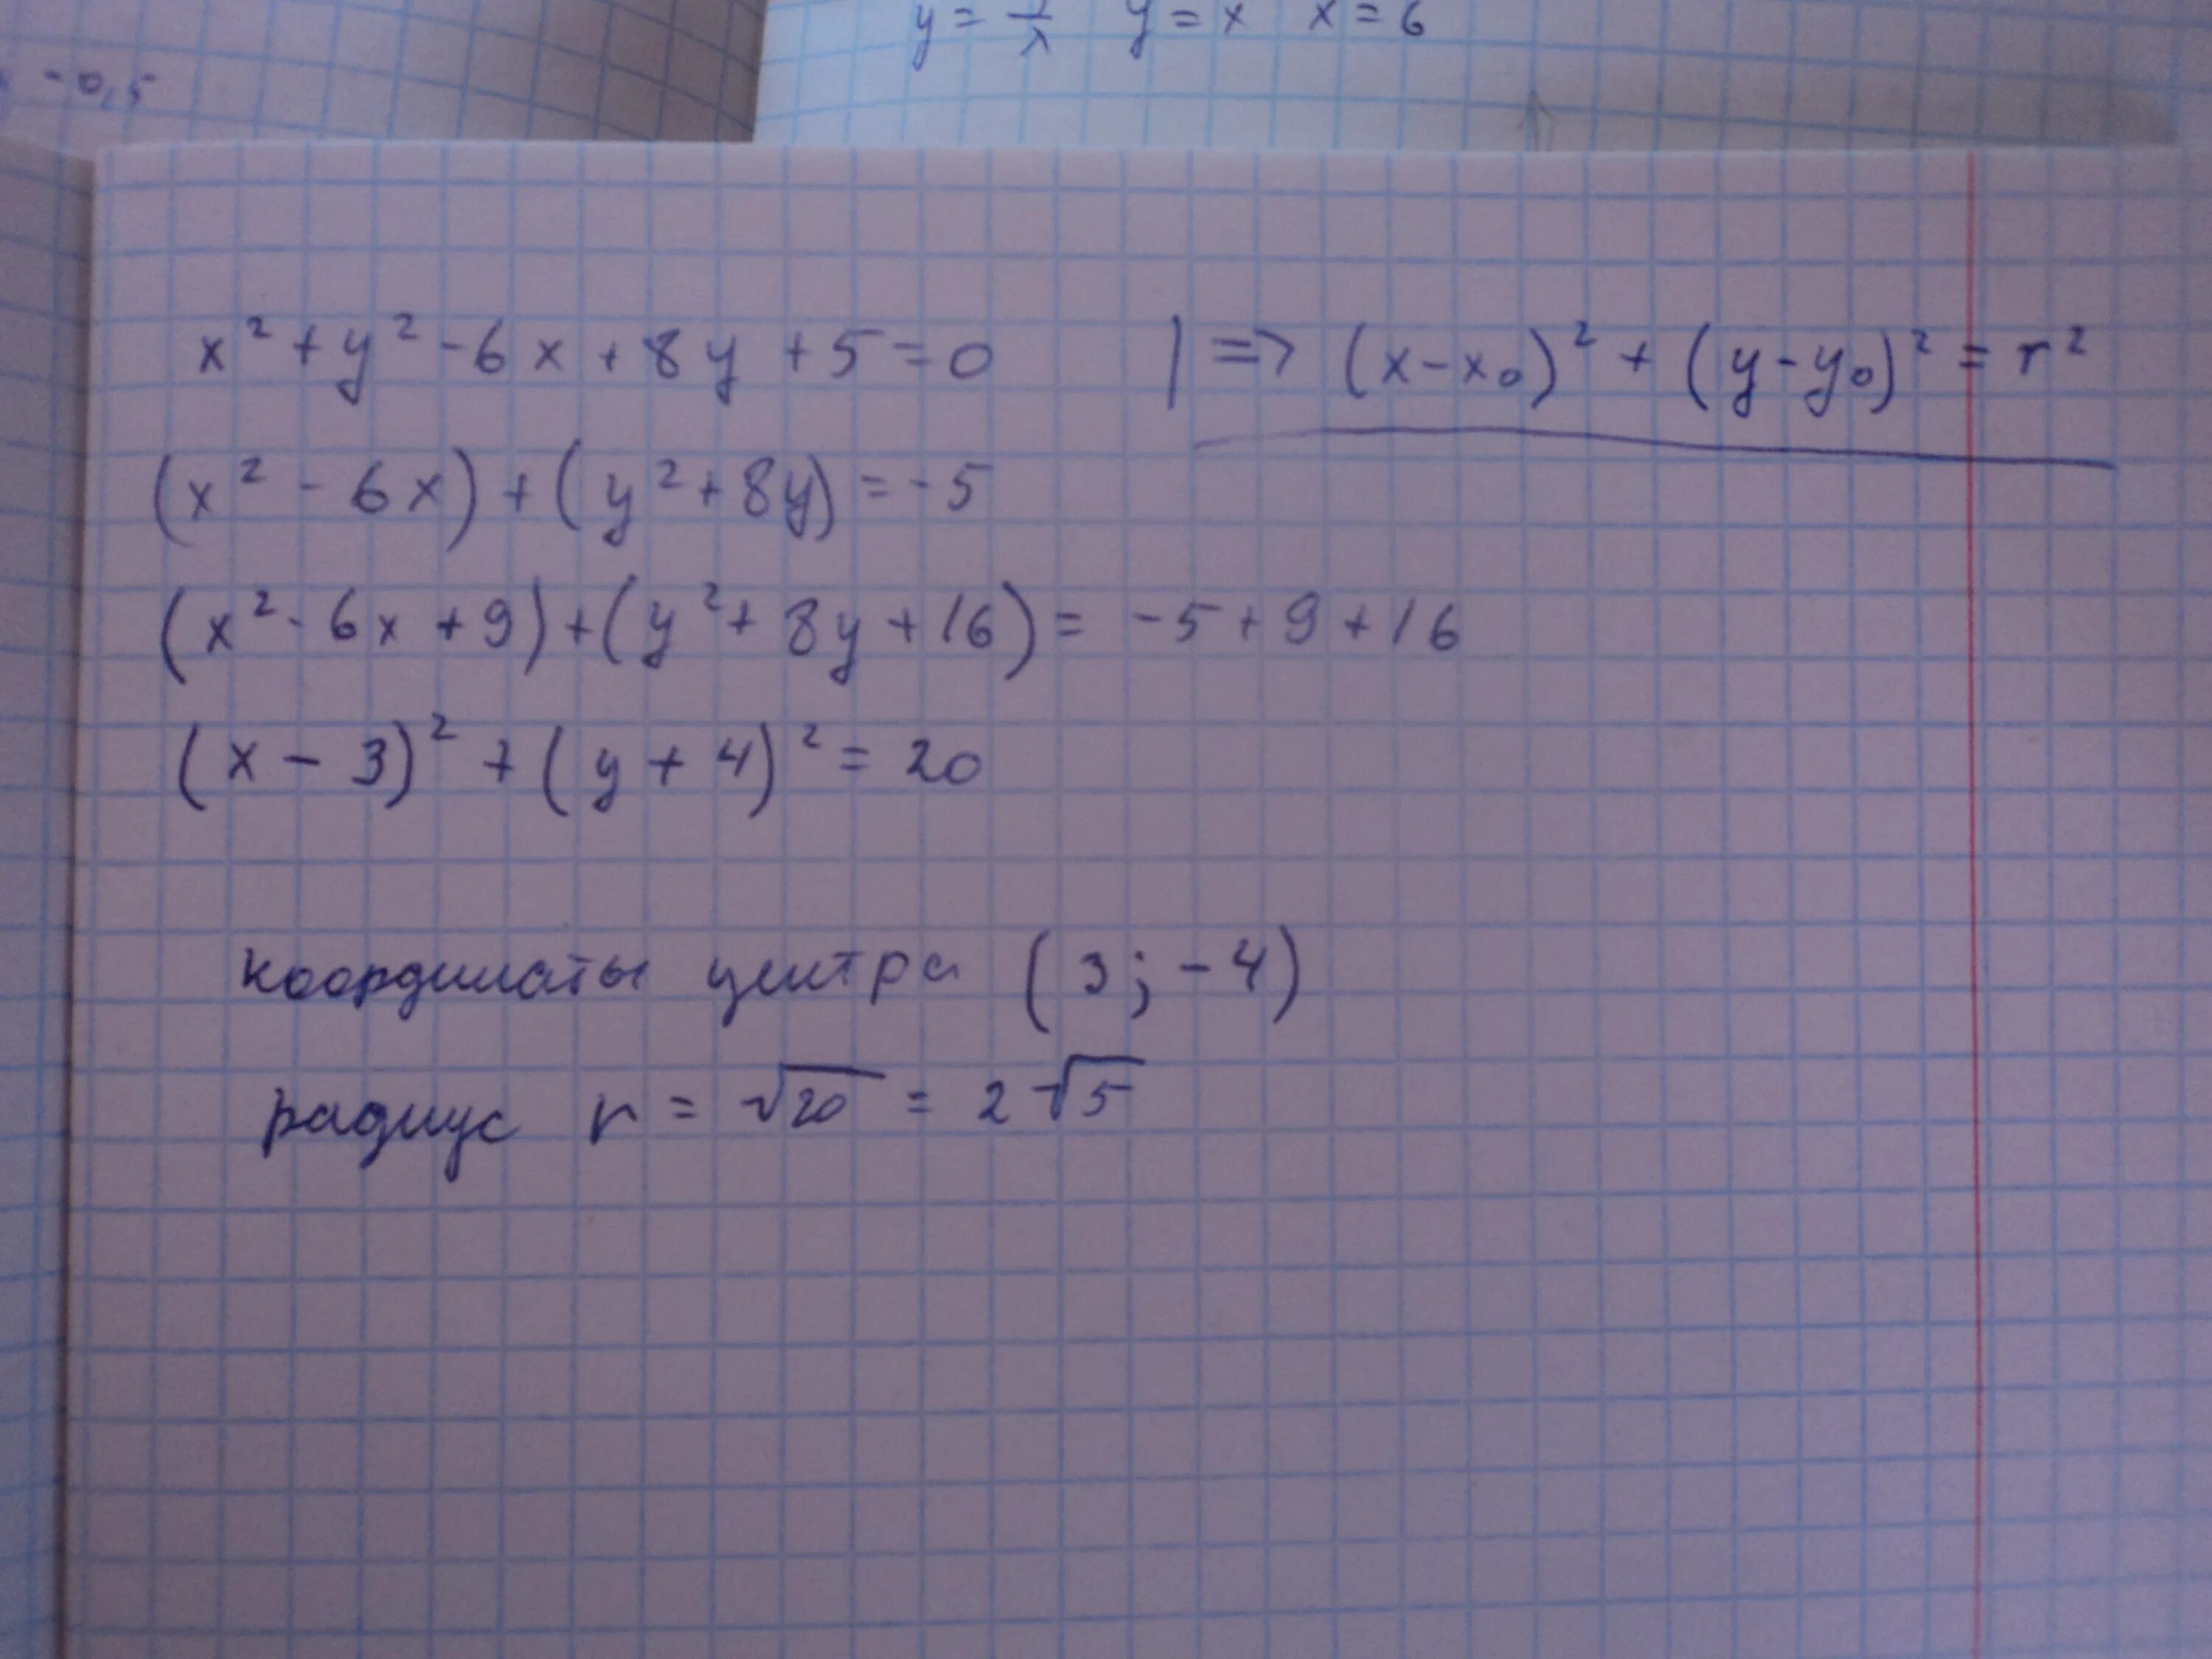 y = 1/x y = x x = 6
-0,5
x² + y² - 6x + 8y + 5 = 0 | => (x - x₀)² + (y - y₀)² = r²
(x² - 6x) + (y² + 8y) = -5
(x² - 6x + 9) + (y² + 8y + 16) = -5 + 9 + 16
(x - 3)² + (y + 4)² = 20
координаты центра (3; -4)
радиус r = √20 = 2√5